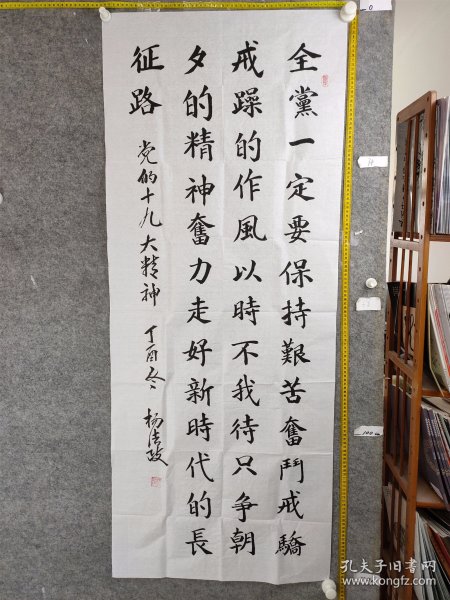 全黨一定要保持艱苦奮鬥戒驕
戒躁的作風以時不我待只争朝
夕的精神奮力走好新時代的長
征路
党的十九大精神 丁酉冬 杨法政
孔夫子旧书网
www.kongfz.com